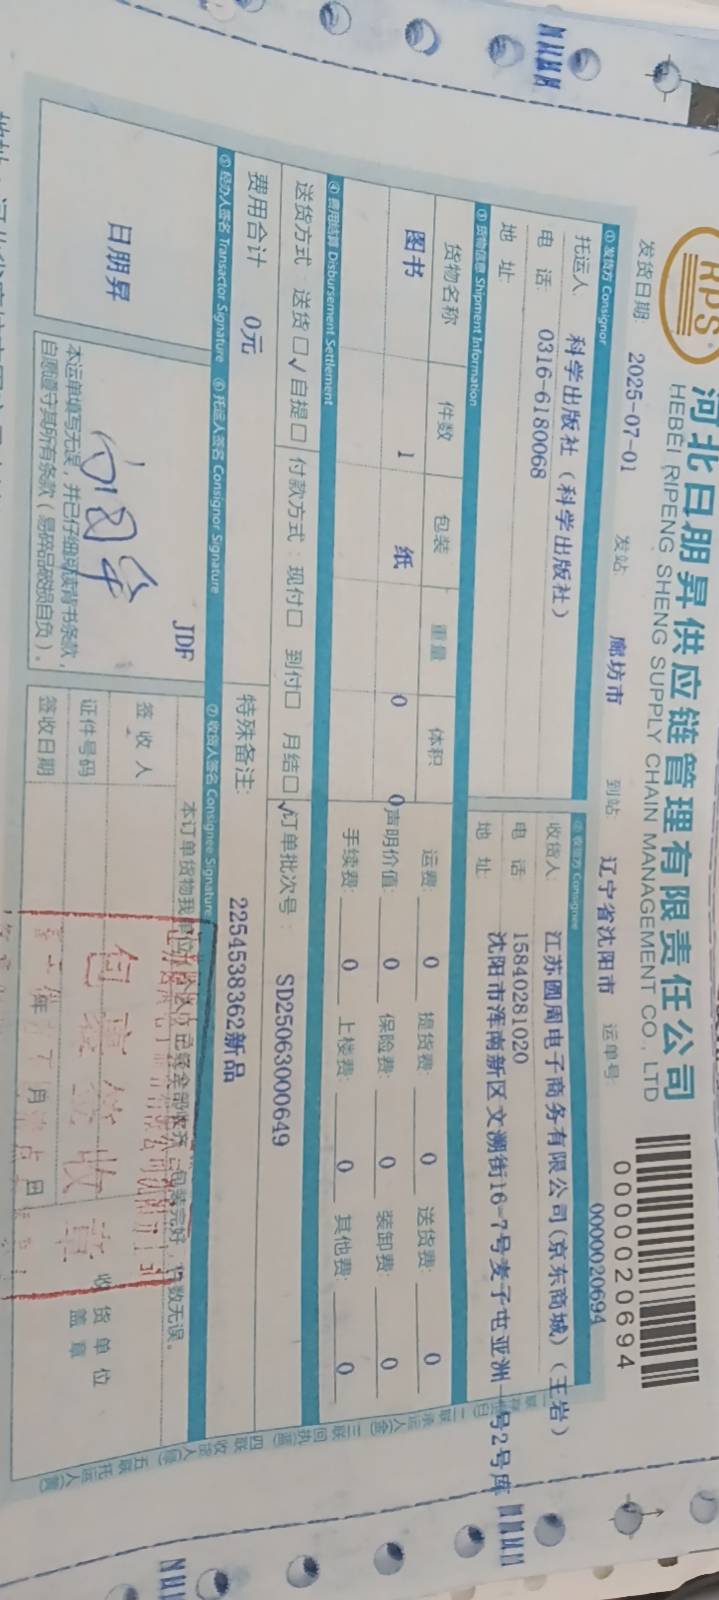 RPS
河北日朋昇供应链管理有限责任公司
HEBEI RIPENG SHENG SUPPLY CHAIN MANAGEMENT CO., LTD
0000020694
发货日期: 2025-07-01 发站: 廊坊市 到站: 辽宁省沈阳市 运单号: 0000020694
① 发货方 Consignor ② 收货方 Consignee
托运人: 科学出版社（科学出版社） 收货人: 江苏圆周电子商务有限公司(京东商城)（王岩）
电 话: 0316-6180068 电 话: 15840281020
地 址: 地 址: 沈阳市浑南新区文溯街16-7号麦子屯亚洲一号2号库
③ 货物信息 Shipment Information
货物名称 件数 包装 重量 体积 运费: 0 提货费: 0 送货费: 0
图书 1 纸 0 0 声明价值: 0 保险费: 0 装卸费: 0
手续费: 0 上楼费: 0 其他费: 0
④ 费用结算 Disbursement Settlement
送货方式 送货□√ 自提□ 付款方式: 现付□ 到付□ 月结□√ 订单批次号: SD25063000649
费用合计 0元 特殊备注: 2254538362新品
⑤ 经办人签名 Transactor Signature ⑥ 托运人签名 Consignor Signature ⑦ 收货人签名 Consignee Signature
日朋昇
JDF
本运单填写无误，并已仔细阅读背书条款，
自愿遵守其所有条款（易碎品破损自负）。
本订单货物我单位 已全部收齐，包装完好，件数无误。
签收人
证件号码
签收日期 年 月 日
收货单位
盖章